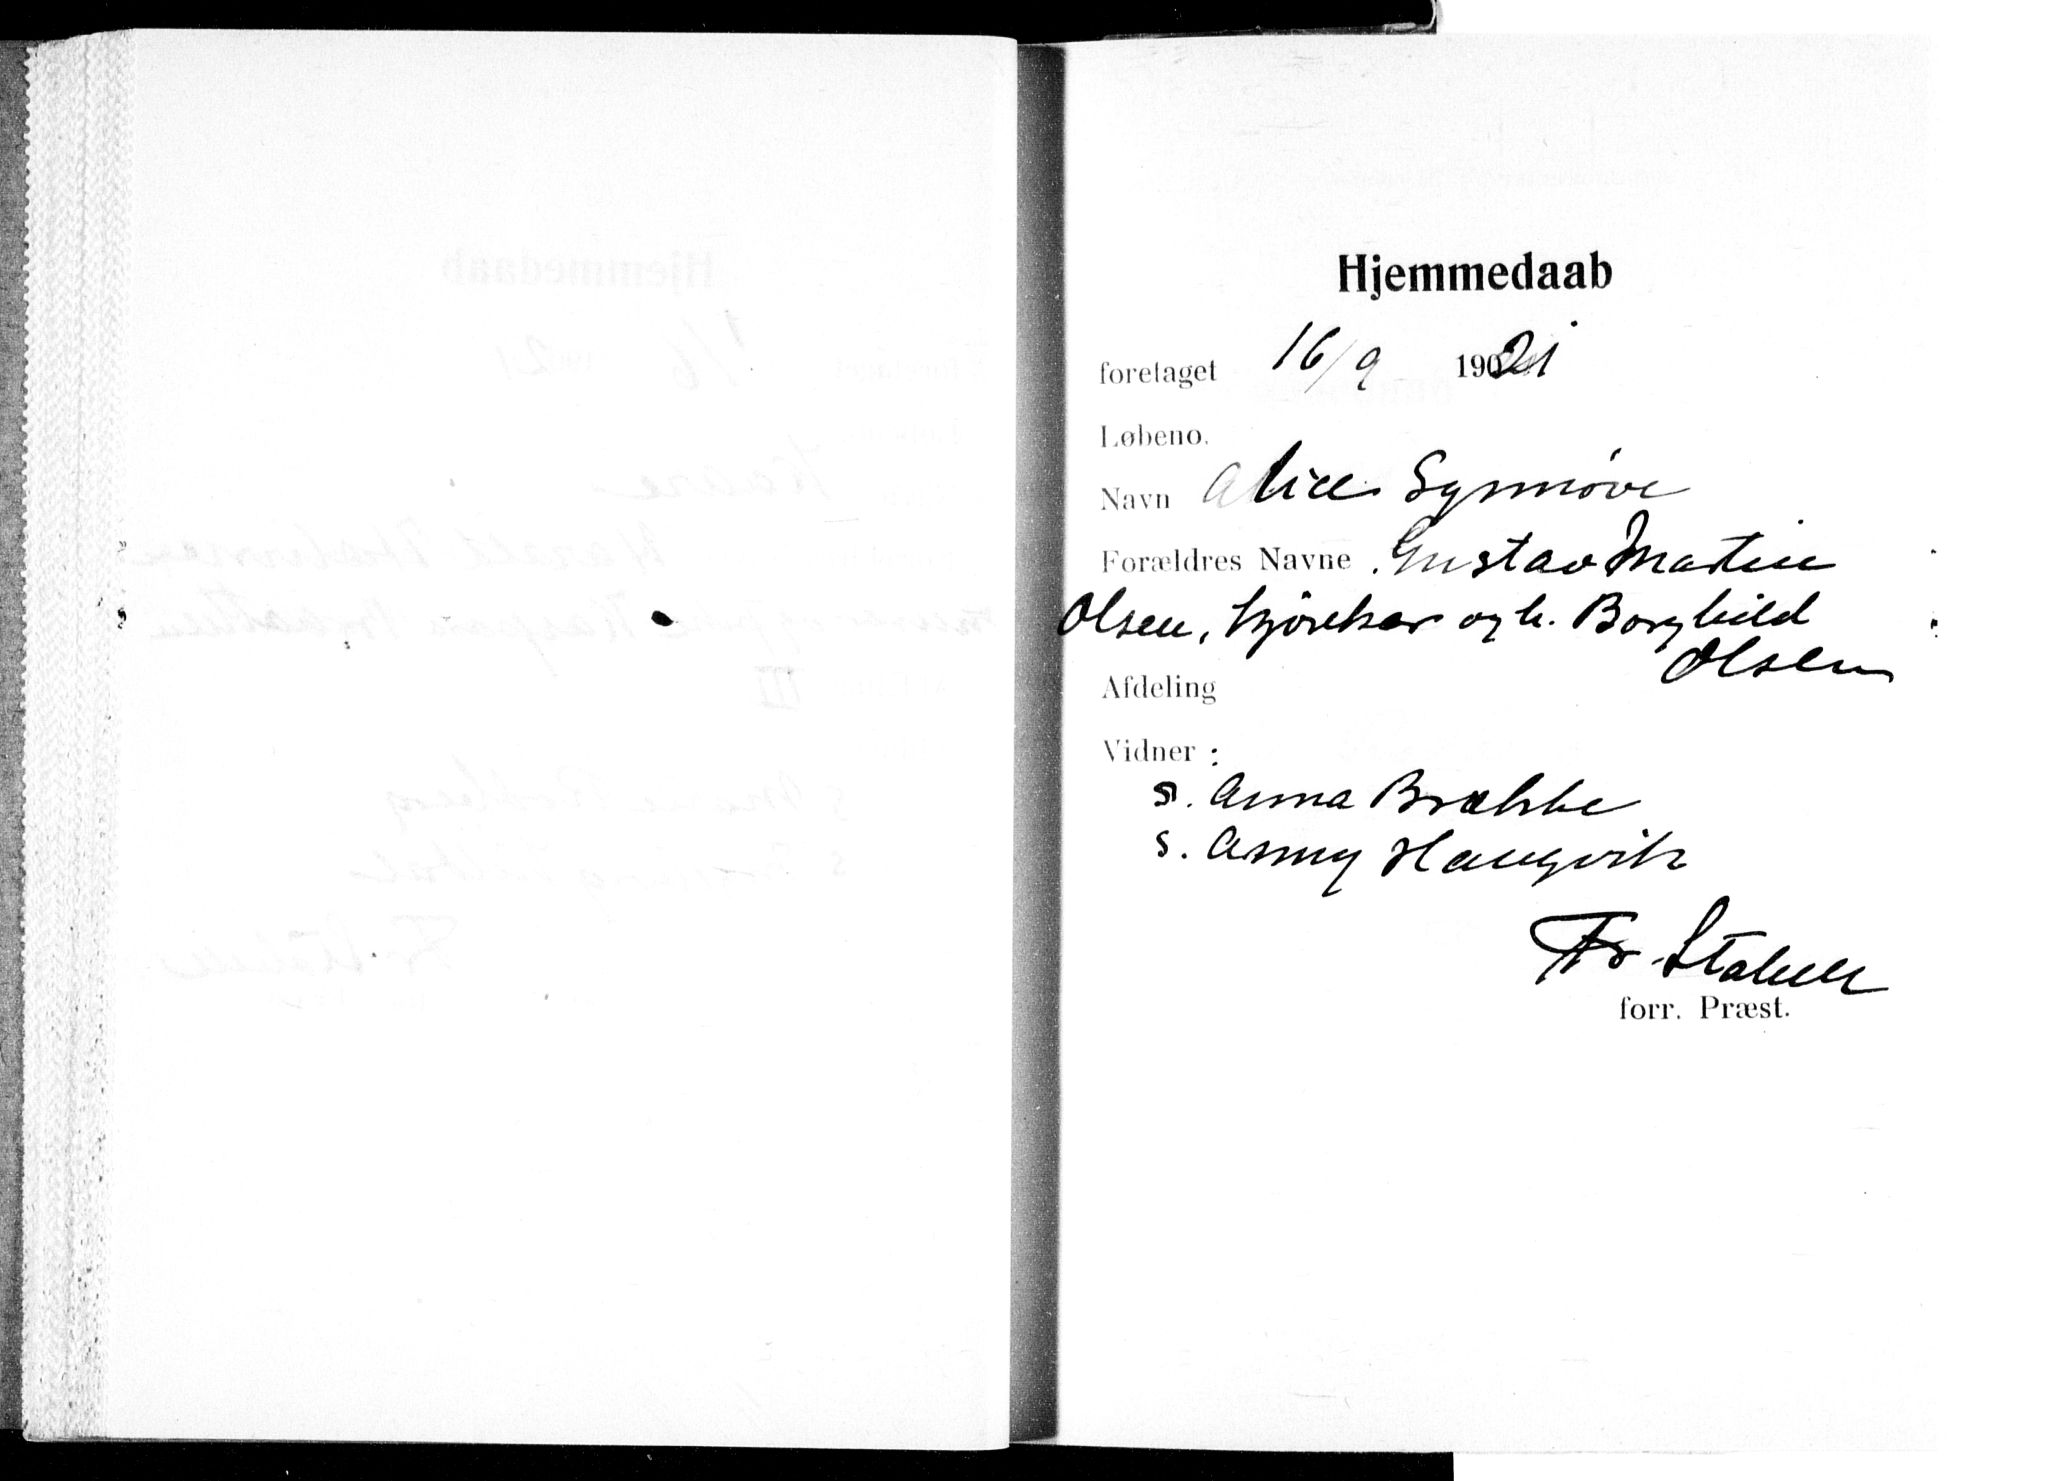 Hjemmedaab
foretaget 16/9 1921
Løbeno.
Navn Alice Synnøve
Forældres Navne Gustav Martin
Olsen, kjørekar og h. Borghild
Olsen
Afdeling
Vidner :
s. Anna Brække
s. Asny Haugvik
Fr. Stabell
forr. Præst.